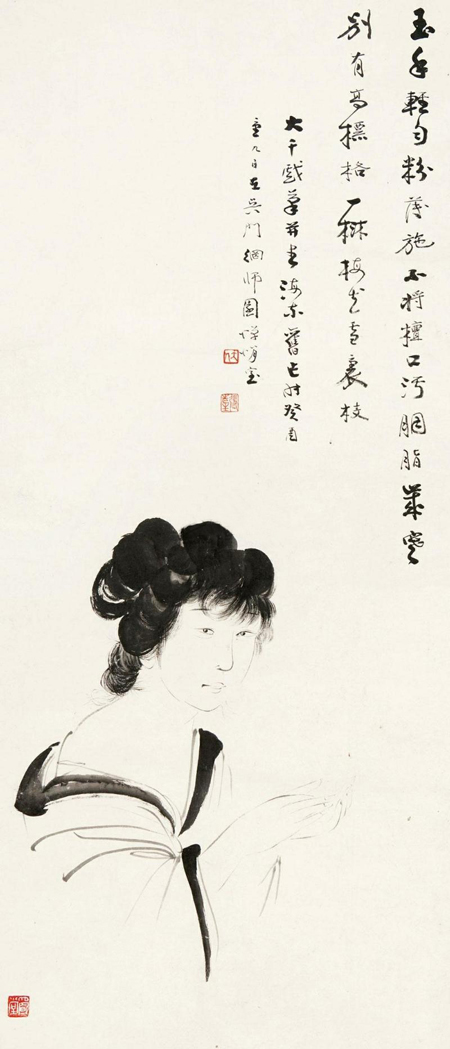 玉手輕勻粉薄施不將檀口汚胭脂歲寒
別有高標格一樹梅花雪裏枝
大千戲筆并書海東舊 時癸酉
重九日在吳門網師園